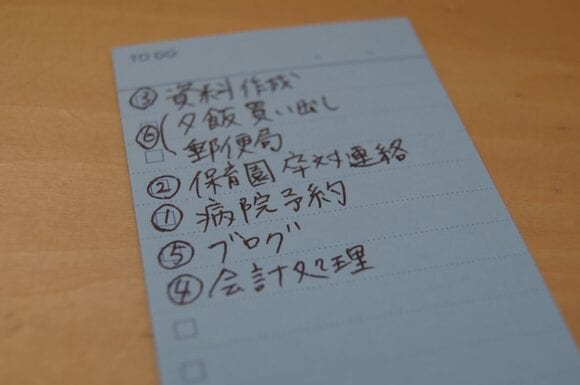 TO DO
③ 資料作成
⑥( 夕飯買い出し
郵便局
② 保育園 卒対連絡
① 病院予約
⑤ ブログ
④ 会計処理